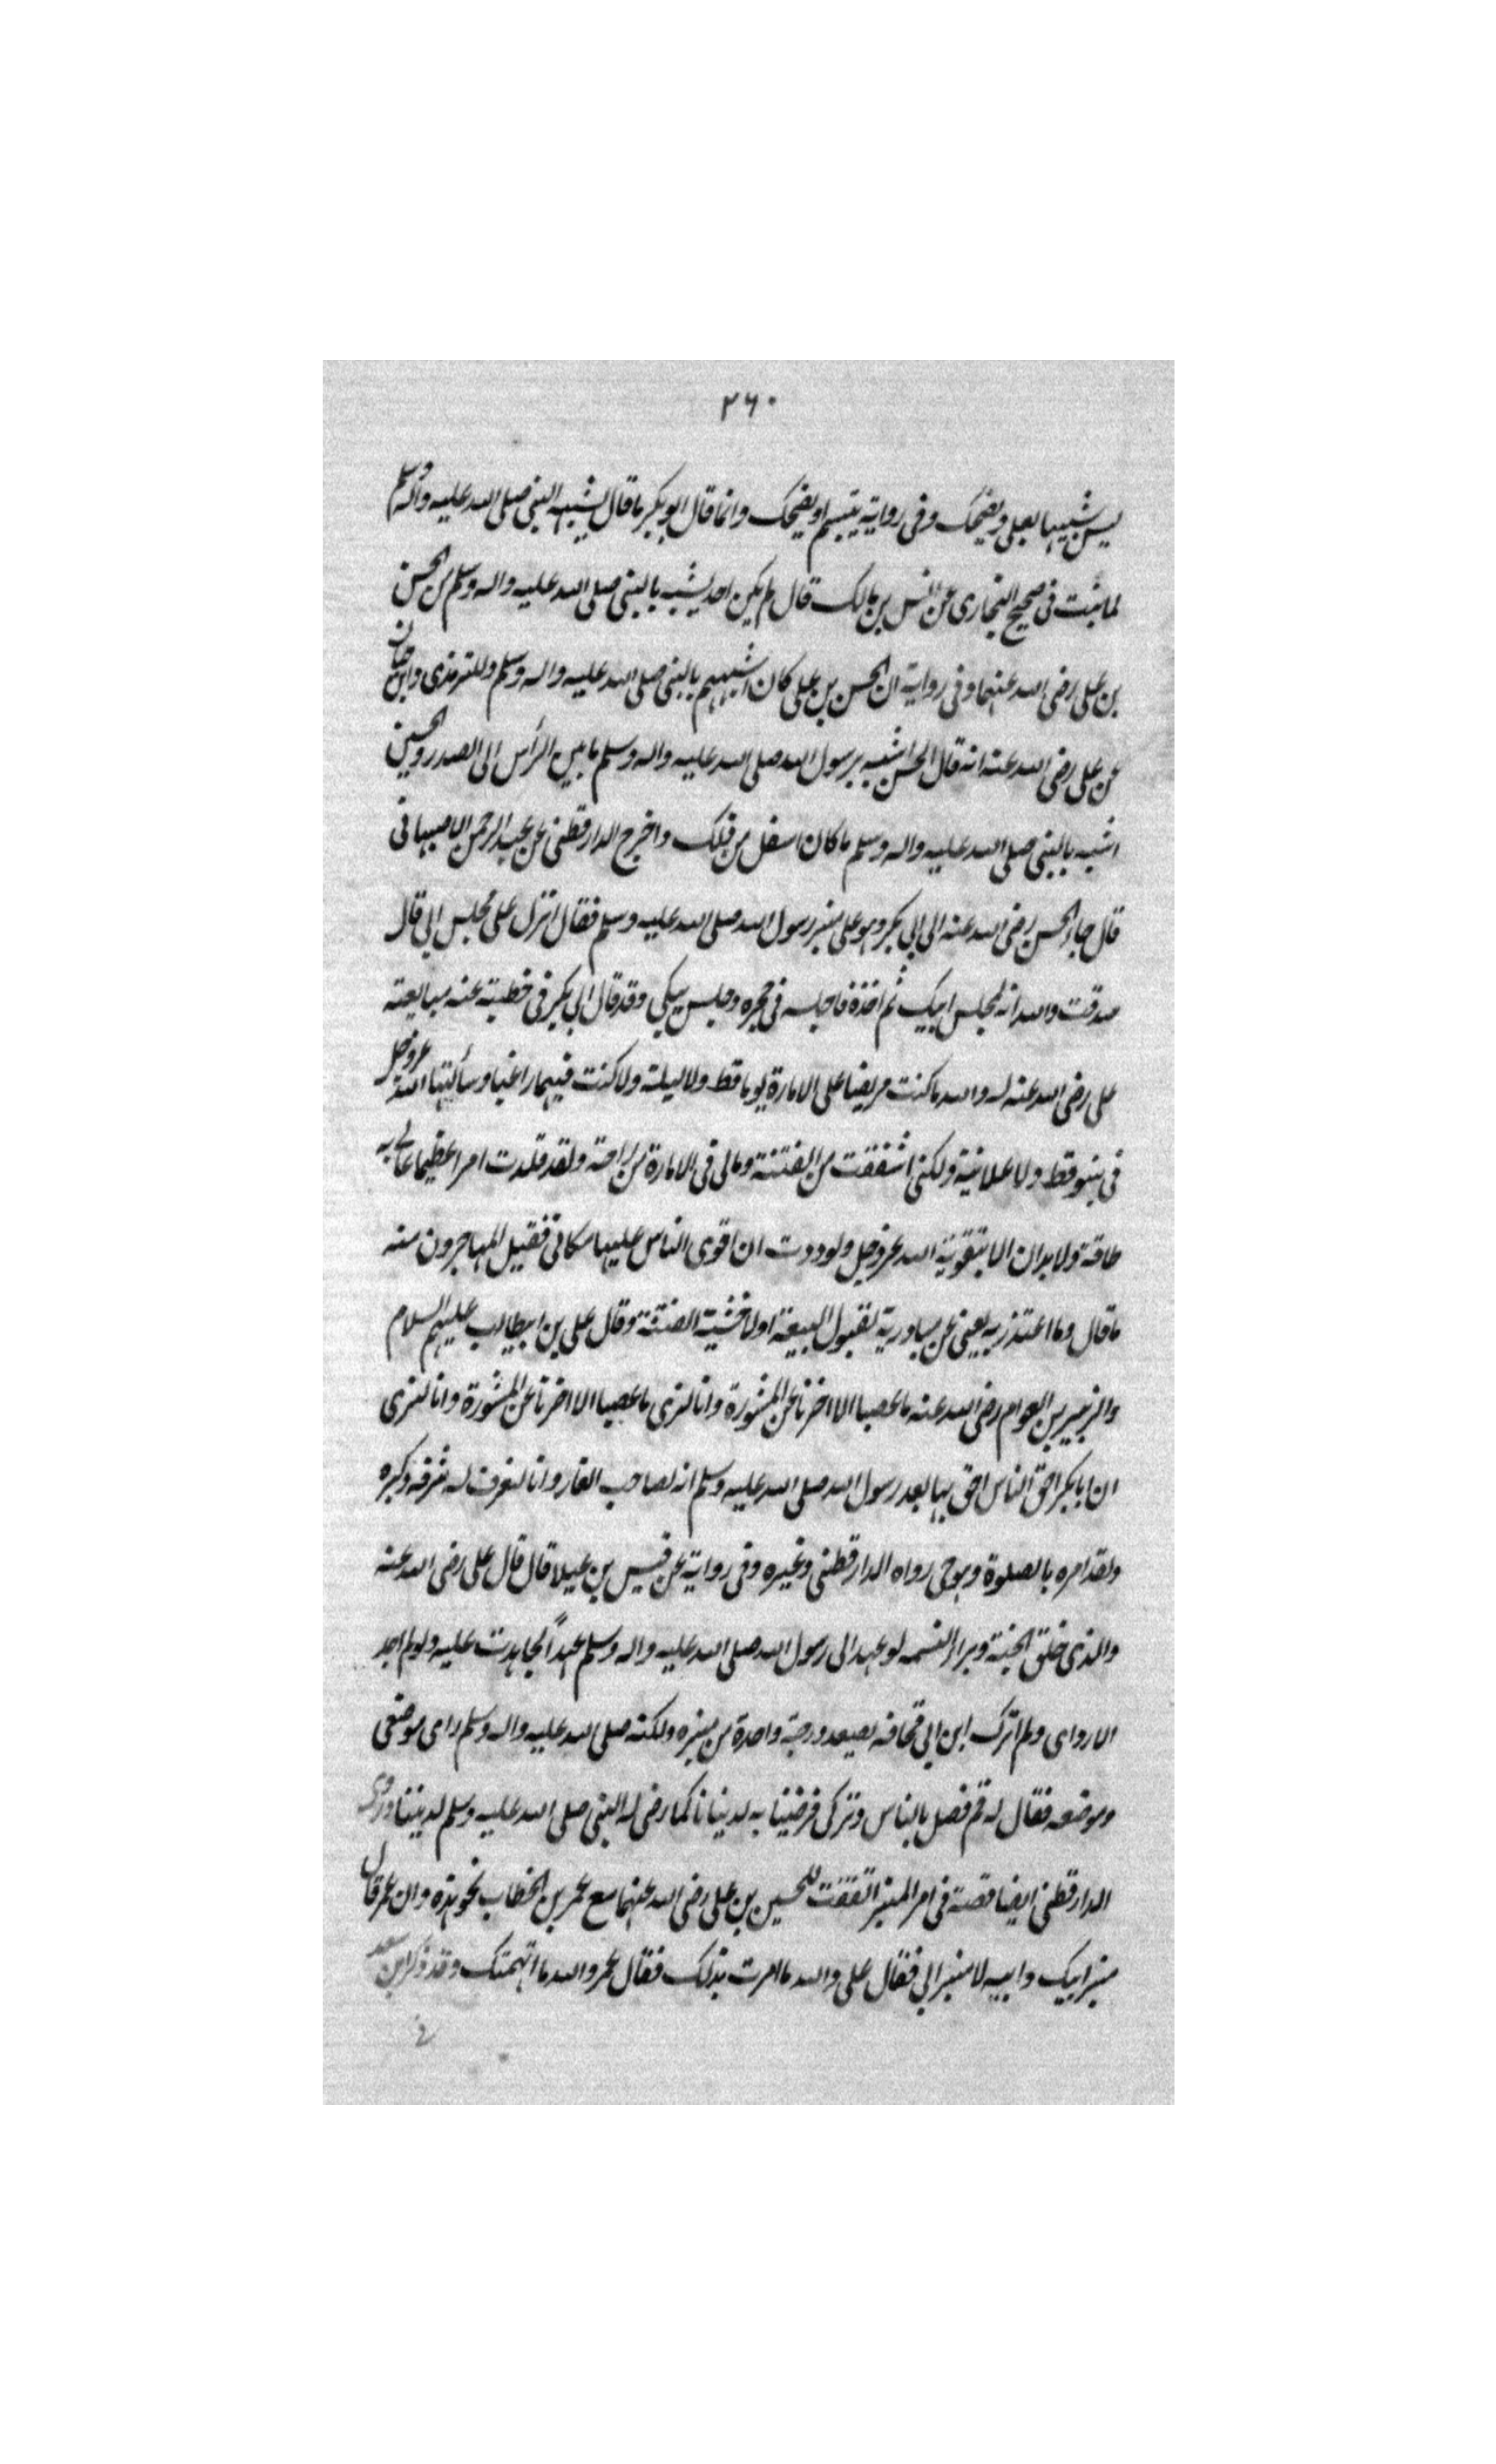 ٢٦٠
ليس شبيها بعلي ويضحك وفي رواية يتبسم او يضحك وانما قال ابو بكر ما قال لشبهه النبي صلى الله عليه واله وسلم
لما ثبت في صحيح البخاري عن انس بن مالك قال لم يكن احد يشبه بالنبي صلى الله عليه واله وسلم من الحسن
بن علي رضي الله عنهما وفي رواية ان الحسن بن علي كان اشبههم بالنبي صلى الله عليه واله وسلم وللترمذي وابن حبان
عن علي رضي الله عنه انه قال الحسن اشبه برسول الله صلى الله عليه واله وسلم ما بين الرأس الى الصدر والحسين
اشبه بالنبي صلى الله عليه واله وسلم ما كان اسفل من ذلك واخرج الدارقطني عن عبد الرحمن الاصبهاني
قال جاء الحسن رضي الله عنه الى ابي بكر وهو على منبر رسول الله صلى الله عليه وسلم فقال انزل على مجلس ابي قال
صدقت والله انه لمجلس ابيك ثم اخذه فاجلسه في حجره وجلس يبكي وقد قال ابي بكر في خطبته عنه مبايعته
علي رضي الله عنه له والله ما كنت حريصا على الامارة يوما قط ولا ليلة ولا كنت فيها راغبا وسألتها الله عز وجل
في قط ولا علانية ولكني اشفقت من الفتنة ومالي في الامارة من راحة ولقد قلدت امرا عظيما مالي به
طاقة ولا يدان الا بتقوية الله عز وجل ولوددت ان اقوى الناس عليها مكاني فقبل المهاجرون منه
ما قال وما اعتذر به يعني عن مبادرته لقبول البيعة اولا خشية الفتنة وقال علي بن ابيطالب عليهم السلام
والزبير بن العوام رضي الله عنه ما غصبا الا اخرنا عن المشورة وانا لنرى ما غصبا الا اخرنا عن المشورة وانا لنرى
ان ابا بكر احق الناس احق بها بعد رسول الله صلى الله عليه وسلم انه لصاحب الغار وانا لنعرف له شرفه وكبره
ولقد امره بالصلوة وهو حي رواه الدارقطني وغيره وفي رواية عن قيس بن عبلا قال قال علي رضي الله عنه
والذي خلق الجنة وبراء النسمه لو عهد الى رسول الله صلى الله عليه واله وسلم عهداً لجاهدت عليه ولو لم اجد
الا رداي ولم اترك ابن ابي قحافه يصعد درجة واحدة من منبره ولكنه صلى الله عليه واله وسلم راى موضعي
وموضعه فقال له قم فصل بالناس وتركى فرضينا به لدنيانا كما رضى له النبي صلى الله عليه وسلم لديننا وروى
الدارقطني ايضا قصة في امر المنبر اتفقت للحسين بن علي رضي الله عنهما مع عمر بن الخطاب نحو هذه وان عمر قال
منبر ابيك وابيه لا منبر ابي فقال علي والله ما امرت بذلك فقال عمر والله ما اتهمتك وقد ذكر ابن سعد